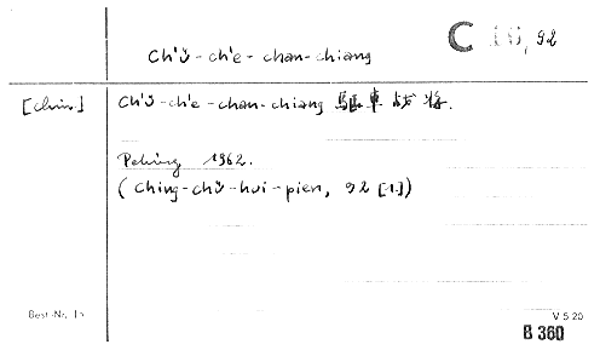 C 16, 92
Ch'ü-ch'e-chan-chiang
[Chin.] Ch'ü-ch'e-chan-chiang 驅車战将.
Peking 1962.
(Ching-chü-hui-pien, 92 [1.])
Best.-Nr. 15
V 5 20
B 360